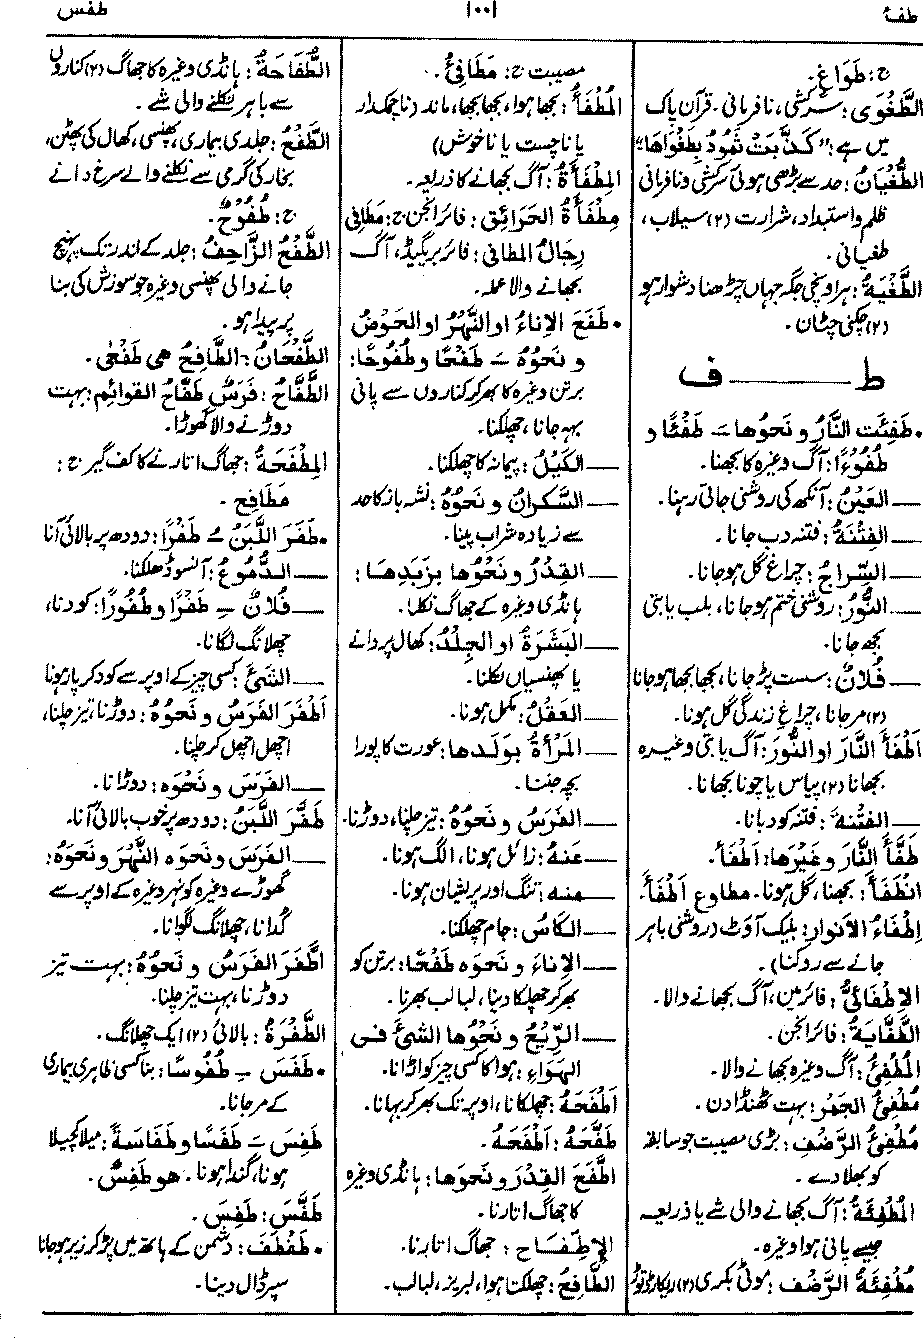 طفئ
۱۰۰۱
طفس
ج: طَوَاغٍ.
الطَّغْوَى: سرکشی، نافرمانی۔ قرآن پاک
میں ہے: "کَذَّبَتْ ثَمُودُ بِطَغْوَاهَا"
الطُّغْيَانُ: حد سے بڑھی ہوئی سرکشی و نافرمانی
ظلم و استبداد، شرارت (۲) سیلاب،
طغیانی۔
الطَّغْيَةُ: ہر اونچی جگہ جہاں چڑھنا دشوار ہو
(۲) چکنی چٹان۔
ط ـــــ ف
• طَفِئَت النَّارُ و نَحوُها ـَ طَفْئًا و
طُفُوْءًا: آگ وغیرہ کا بجھنا۔
ــ العَيْنُ: آنکھ کی روشنی جاتی رہنا۔
ــ الفِتْنَةُ: فتنہ دب جانا۔
ــ السِّراجُ: چراغ گل ہوجانا۔
ــ النُّوْرُ: روشنی ختم ہوجانا، بلب یا بتی
بجھ جانا۔
ــ فُلانٌ: سست پڑ جانا، بجھا بجھا ہو جانا
(۲) مرجانا، چراغ زندگی گل ہونا۔
اَطْفَأَ النَّارَ او النُّورَ: آگ یا بتی وغیرہ
بجھانا (۲) پیاس یا چونا بجھانا۔
ــ الفتنةَ: فتنہ کو دبانا۔
طَفَّأَ النَّارَ وغَيْرَها: اَطْفَأ۔
اِنْطَفَأَ: بجھنا، گل ہونا۔ مطاوع اَطْفَأَ۔
اِطْفَاءُ الاَنوار: بلیک آؤٹ (روشنی باہر
جانے سے روکنا)۔
الاِطْفَائيُّ: فائر مین، آگ بجھانے والا۔
الطَّفَّايَةُ: فائر انجن۔
المُطْفِئُ: آگ وغیرہ بجھانے والا۔
مُطْفِئُ الجَمْر: بہت ٹھنڈا دن۔
مُطْفِئُ الرَّضْفِ: بڑی مصیبت جو سابقہ
کو بھلا دے۔
المُطْفِئَةُ: آگ بجھانے والی شے یا ذریعہ
جیسے پانی ہوا وغیرہ۔
مُطْفِئَةُ الرَّضْف: موٹی بکری (۲) ریکارڈ توڑ
مصیبت ج: مَطَافِئُ۔
المُطْفَأُ: بجھا ہوا، بجھا بجھا، ماند (ناچمکدار
یا ناچست یا ناخوش)
المِطْفَأَةُ: آگ بجھانے کا ذریعہ۔
مِطْفَأَةُ الحَرَائق: فائر انجن ج: مَطَافِی
رِجَالُ المطافی: فائر بریگیڈ، آگ
بجھانے والا عملہ۔
• طَفَحَ الاِناءُ او النَّهْرُ او الحَوْضُ
و نَحْوُهُ ـَ طَفْحًا و طُفُوحًا:
برتن وغیرہ کا بھر کر کناروں سے پانی
بہہ جانا، چھلکنا۔
ــ الكَيْلُ: پیمانہ کا چھلکنا۔
ــ السَّكرانُ و نَحْوُهُ: نشہ باز کا حد
سے زیادہ شراب پینا۔
ــ القِدْرُ و نَحْوُها بِزَبَدِها:
ہانڈی وغیرہ کے جھاگ نکلنا۔
ــ البَشَرَةُ او الجِلْدُ: کھال پر دانے
یا پھنسیاں نکلنا۔
ــ العَقْلُ: مکمل ہونا۔
ــ المَرْأةُ بِوَلَدها: عورت کا پورا
بچہ جننا۔
ــ الفَرَسُ و نَحْوُهُ: تیز چلنا، دوڑنا۔
ــ عَنهُ: زائل ہونا، الگ ہونا۔
ــ منه: تنگ اور پریشان ہونا۔
ــ الكَأسُ: جام چھلکنا۔
ــ الاِناءَ و نَحوَه طَفْحًا: برتن کو
بھر کر چھلکا دینا، لبالب بھرنا۔
ــ الرِّيْحُ و نَحْوُها الشئَ فی
الهَوَاءِ: ہوا کا کسی چیز کو اڑانا۔
اَطْفَحَهُ: چھلکانا، اوپر تک بھر کر بہانا۔
طَفَّحَهُ: اَطْفَحَهُ۔
اطَّفَحَ القِدْرَ و نَحوَها: ہانڈی وغیرہ
کا جھاگ اتارنا۔
الاِطْفَاح: جھاگ اتارنا۔
الطَّافِحُ: چھلکتا ہوا، لبریز، لبالب۔
الطُّفَاحَةُ: ہانڈی وغیرہ کا جھاگ (۲) کناروں
سے باہر نکلنے والی شے۔
الطَّفْحُ: جلدی بیماری، پھنسی، کھال کی پھٹن،
بخار کی گرمی سے نکلنے والے سرخ دانے
ج: طُفُوحٌ۔
الطَّفْحُ الزَّاحِفُ: جلد کے اندر تک پہنچ
جانے والی پھنسی وغیرہ جو سوزش کی بنا
پر پیدا ہو۔
الطَّفْحَانُ: الطَّافِحُ هی طَفْحٰی۔
الطَّفَّاحُ: فَرَسٌ طَفَّاحُ القوائم: بہت
دوڑنے والا گھوڑا۔
المِطْفَحَةُ: جھاگ اتارنے کا کف گیر ج:
مَطَافِح۔
• طَفَرَ اللَّبَنُ ـُ طَفْرًا: دودھ پر بالائی آنا
ــ الدُّمُوعُ: آنسو ڈھلکنا۔
ــ فُلانٌ ـِ طَفْرًا و طُفُورًا: کودنا،
چھلانگ لگانا۔
ــ الشئَ: کسی چیز کے اوپر سے کود کر پار ہونا
اَطْفَرَ الفَرَسُ و نَحوُهُ: دوڑنا، تیز چلنا،
اچھل اچھل کر چلنا۔
ــ الفَرَسَ و نَحْوَه: دوڑانا۔
طَفَّرَ اللَّبَنُ: دودھ پر خوب بالائی آنا۔
ــ الفَرَسَ و نَحوَه النَّهْرَ و نَحوَهُ:
گھوڑے وغیرہ کو نہر وغیرہ کے اوپر سے
کُدانا، چھلانگ لگوانا۔
اطَّفَرَ الفَرَسُ و نَحوُهُ: بہت تیز
دوڑنا، بہت تیز چلنا۔
الطَّفْرَةُ: بالائی (۲) ایک چھلانگ۔
• طَفَسَ ـِ طُفُوسًا: بنا کسی ظاہری بیماری
کے مرجانا۔
طَفِسَ ـَ طَفَسًا و طَفَاسَةً: میلا کچیلا
ہونا، گندا ہونا۔ هو طَفِسٌ۔
طَفَّسَ: طَفِسَ۔
• طَفْطَفَ: دشمن کے ہاتھ میں پڑ کر زیر ہو جانا
سپر ڈال دینا۔